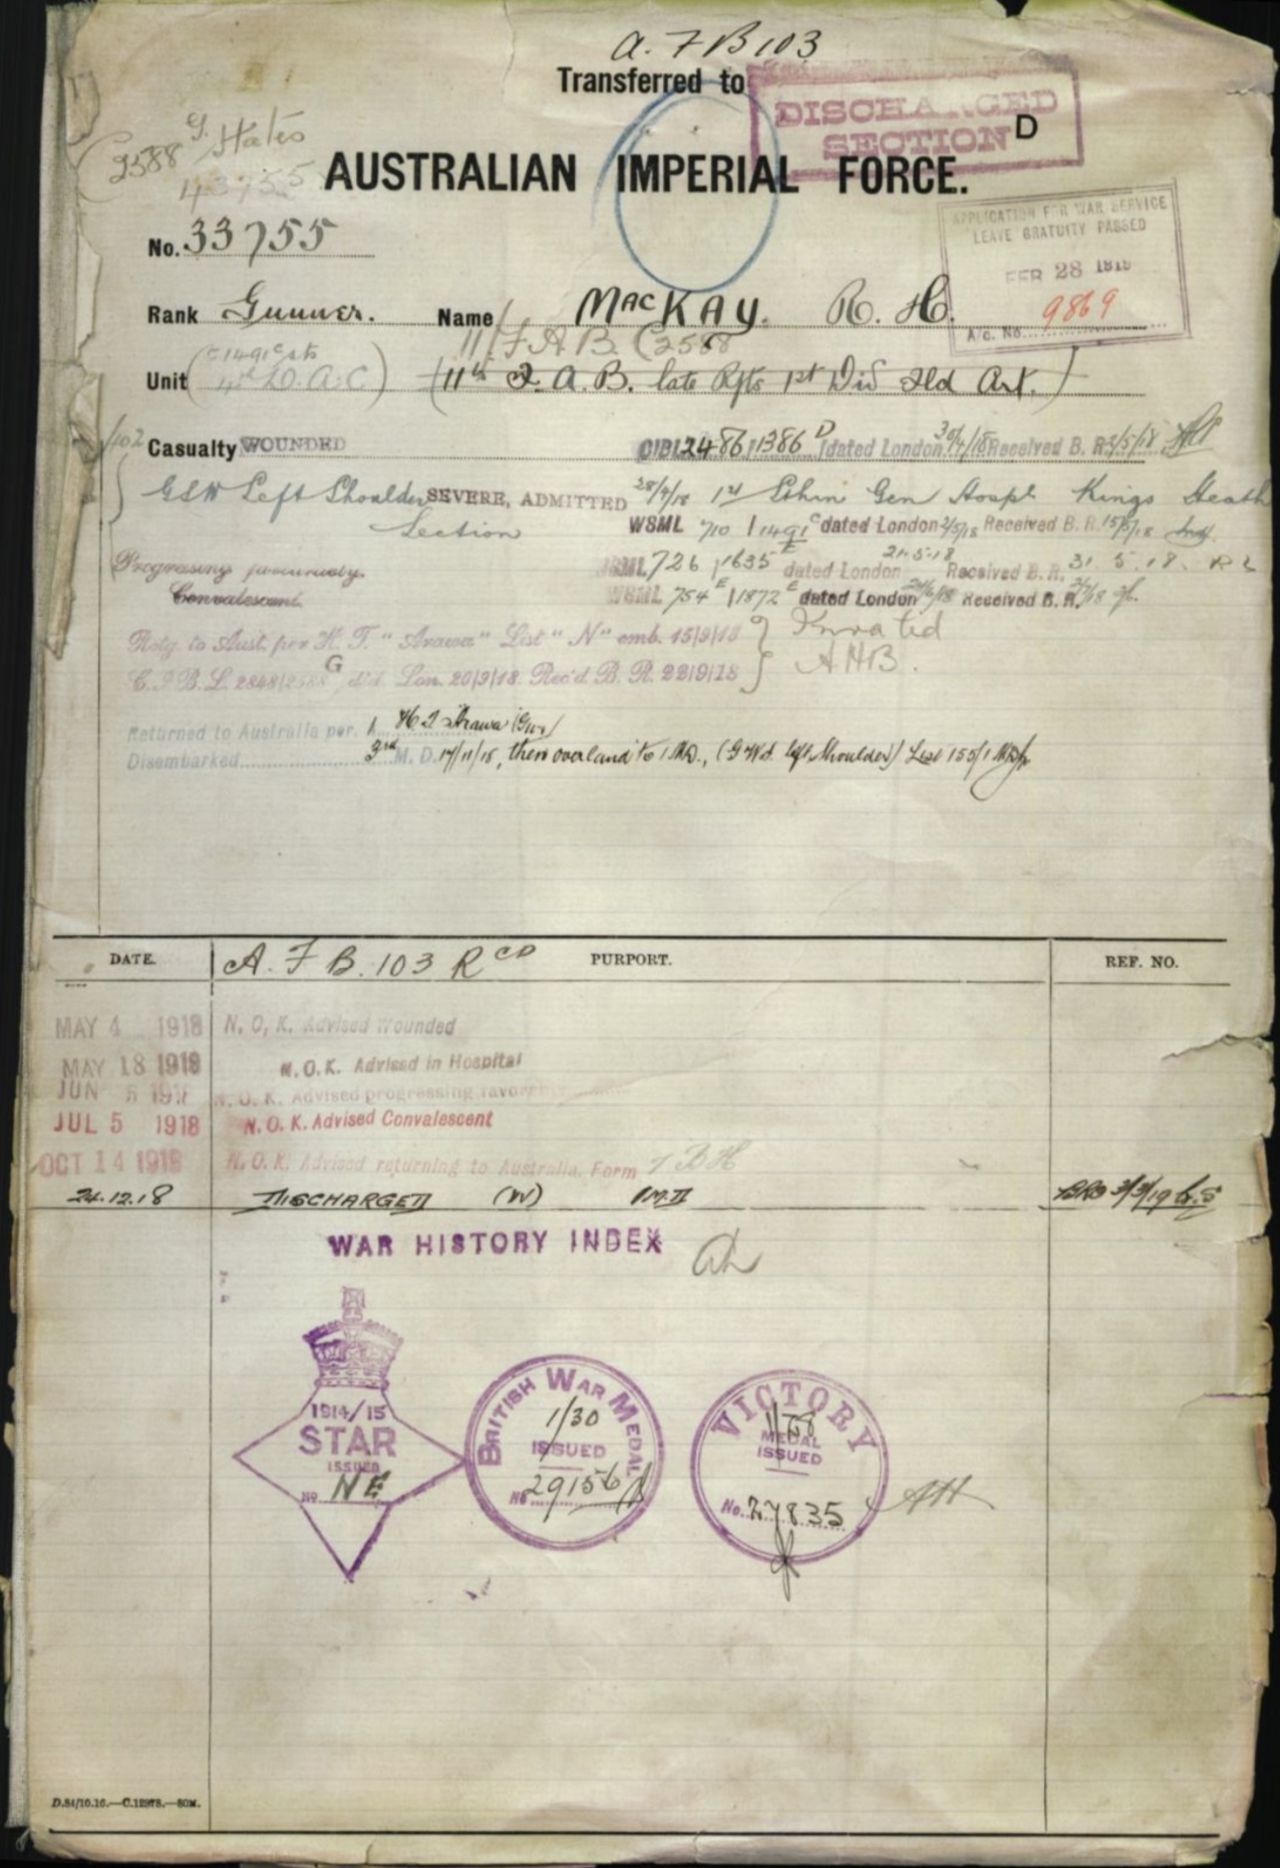 A. F B 103
Transferred to
DISCHARGED
SECTION D
G. States
2588
43755
AUSTRALIAN IMPERIAL FORCE.
APPLICATION FOR WAR SERVICE
LEAVE GRATUITY PASSED
FEB 28 1919
9869
A/c. No.
No. 33755
Rank Gunner. Name MacKAY. R. H.
11/F A B. (2588
(C 1491 C sts
Unit 4th D.A.C) (11th F. A. B. late Rfts 1st Div Fld Art.)
/102 Casualty WOUNDED CIBL 2486/1386 D dated London 30/4/18 Received B. R. 2/5/18
GSW Left Shoulder SEVERE, ADMITTED 28/4/18 1st Sthrn Gen Hospl Kings Heath
Section WSML 710 1491 C dated London 2/5/18 Received B. R. 15/5/18
Progressing favourably. WSML 726 1635 E dated London 21.5.18 Received B. R. 31.5.18.
Convalescent. WSML 754 E 1872 E dated London Received B. R. 2/7/18
Retg. to Aust. per H. T. "Arawa" List "N" emb. 15/9/18
C.I.B.L. 2848/2588 G d'd. Lon. 20/9/18. Rec'd. B. R. 22/9/18
AHB.
Returned to Australia per. H.T. Arawa
Disembarked 3rd M. D. 17/11/18, then overland to 1 MD., (GSW left Shoulder) List 155/1
DATE. A. F B. 103 RCD PURPORT. REF. NO.
MAY 4 1918 N. O. K. Advised Wounded
MAY 18 1918 N.O.K. Advised in Hospital
JUN 5 1918 N. O. K. Advised progressing favor
JUL 5 1918 N. O. K. Advised Convalescent
OCT 14 1918 N. O. K. Advised returning to Australia. Form BH
24.12.18 DISCHARGED (W) 1MD BRO 3/3/19
WAR HISTORY INDEX
1914/15
STAR
ISSUED
No NE
BRITISH WAR MEDAL
1/30
ISSUED
No 29156
VICTORY
MEDAL
ISSUED
No. 27835
AH
D.84/10.16.—C.12978.—50M.